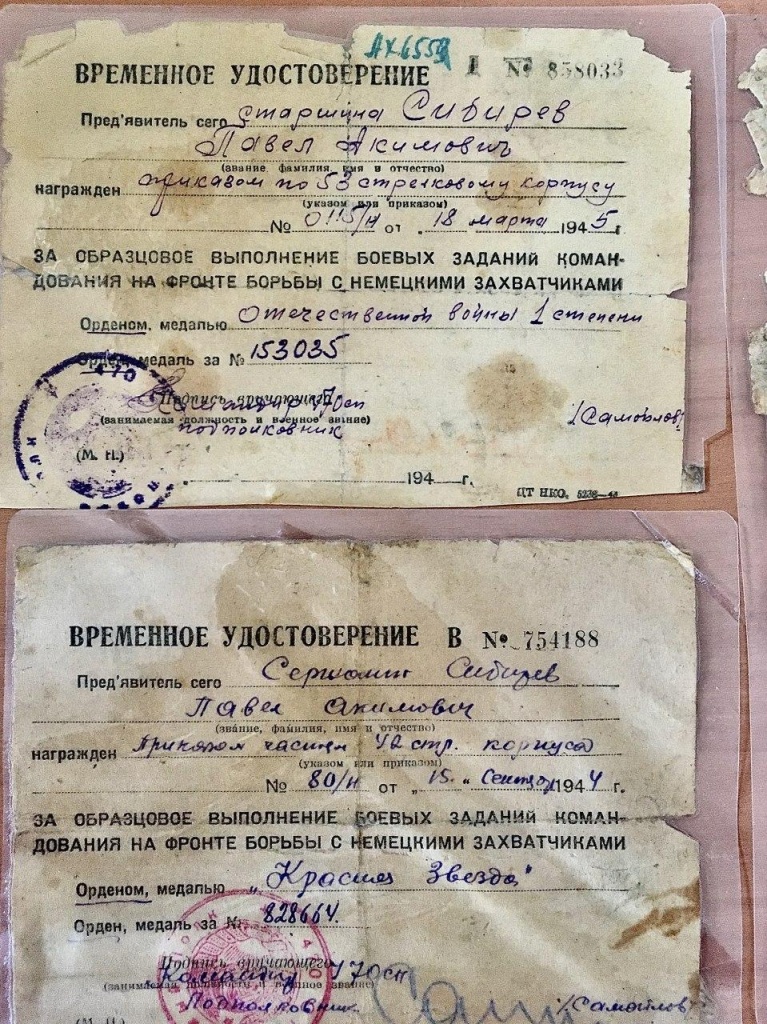 АХ6559
ВРЕМЕННОЕ УДОСТОВЕРЕНИЕ Д № 858033
Пред'явитель сего старшина Сибирев
Павел Акимович
(звание фамилия, имя и отчество)
награжден приказом по 53 стрелковому корпусу
(указом или приказом)
№ 0115/н от „18 марта 1945 г.
ЗА ОБРАЗЦОВОЕ ВЫПОЛНЕНИЕ БОЕВЫХ ЗАДАНИЙ КОМАН-
ДОВАНИЯ НА ФРОНТЕ БОРЬБЫ С НЕМЕЦКИМИ ЗАХВАТЧИКАМИ
Орденом, медалью Отечественной войны 1 степени
Орден, медаль за № 153035
Подпись вручающего
Командир 470 сп
(занимаемая должность и военное звание)
подполковник /Самойлов/
(М. П.)
194 г.
ЦТ НКО. 5236—44
ВРЕМЕННОЕ УДОСТОВЕРЕНИЕ В № 754188
Пред'явитель сего Сибирев
Павел Акимович
(звание, фамилия, имя и отчество)
награжден Приказом частям 42 стр. корпуса
(указом или приказом)
№ 80/н от „15 „ 1944 г.
ЗА ОБРАЗЦОВОЕ ВЫПОЛНЕНИЕ БОЕВЫХ ЗАДАНИЙ КОМАН-
ДОВАНИЯ НА ФРОНТЕ БОРЬБЫ С НЕМЕЦКИМИ ЗАХВАТЧИКАМИ
Орденом, медалью „Красная Звезда"
Орден, медаль за № 828664.
Подпись вручающего
Командир 470 сп
(занимаемая должность и военное звание)
Подполковник /Самойлов
(М. П.)